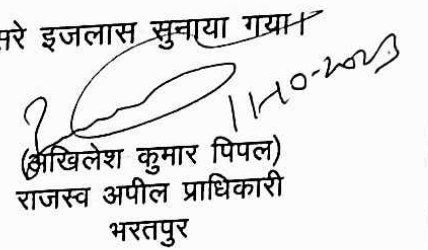 सरे इजलास सुनाया गया।
11-10-2023
(अखिलेश कुमार पिपल)
राजस्व अपील प्राधिकारी
भरतपुर